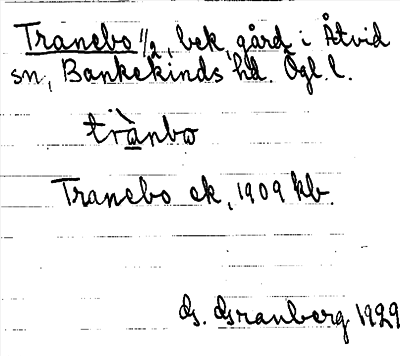 Tranebo 1/2, bek. gård i Åtvid
sn, Bankekinds hd. Ögl. l.
trànbo
Tranebo ek, 1909 kb.
G. Granberg 1929